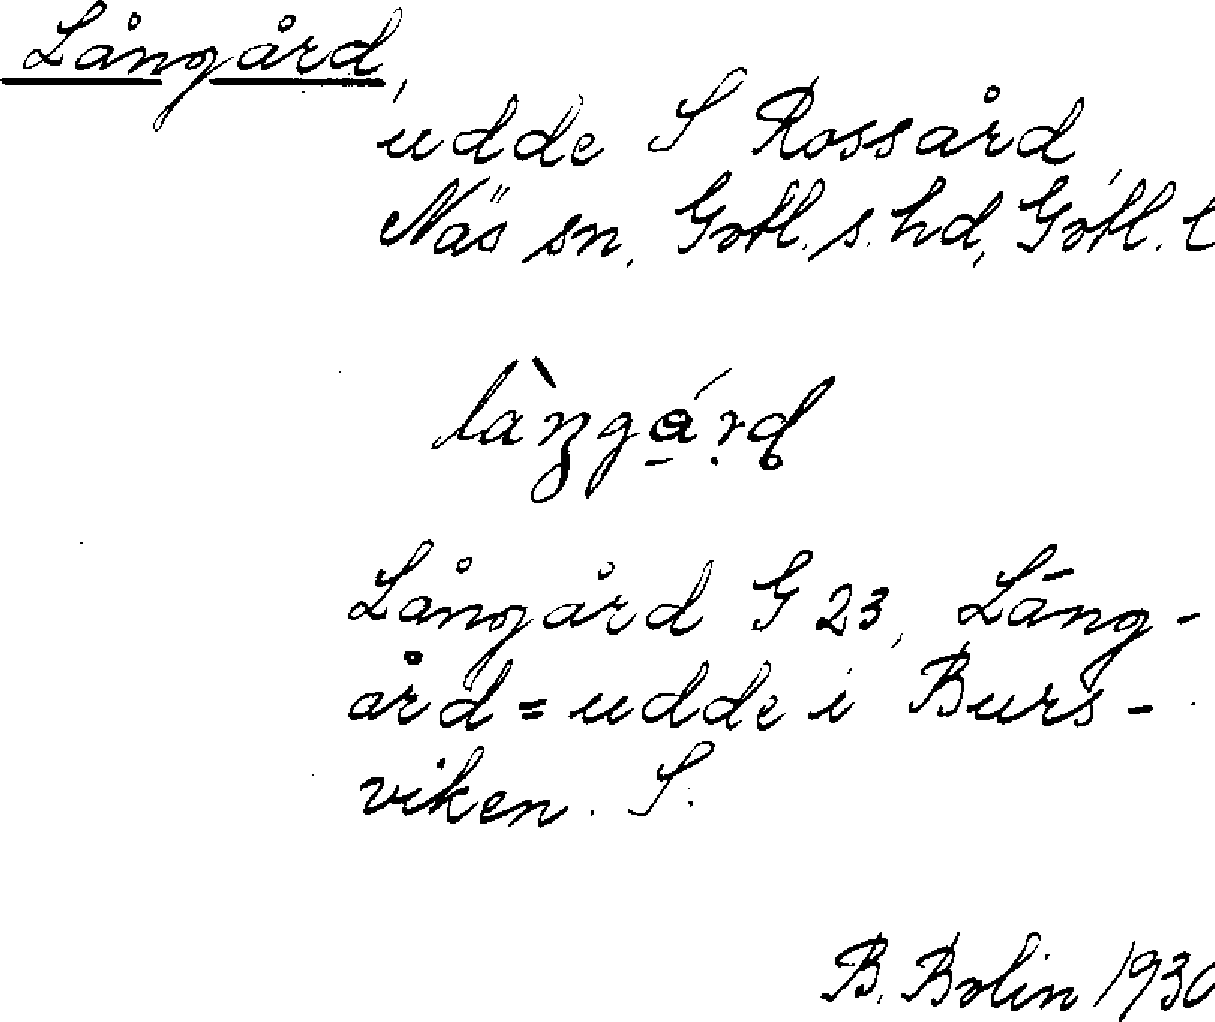 Långård,
udde S Rossård,
Näs sn, Gotl. s. hd, Gotl. l
làŋgá̱rd
Långård G 23, Lång-
ård = udde i Burs-
viken. S.
B. Bolin 1930